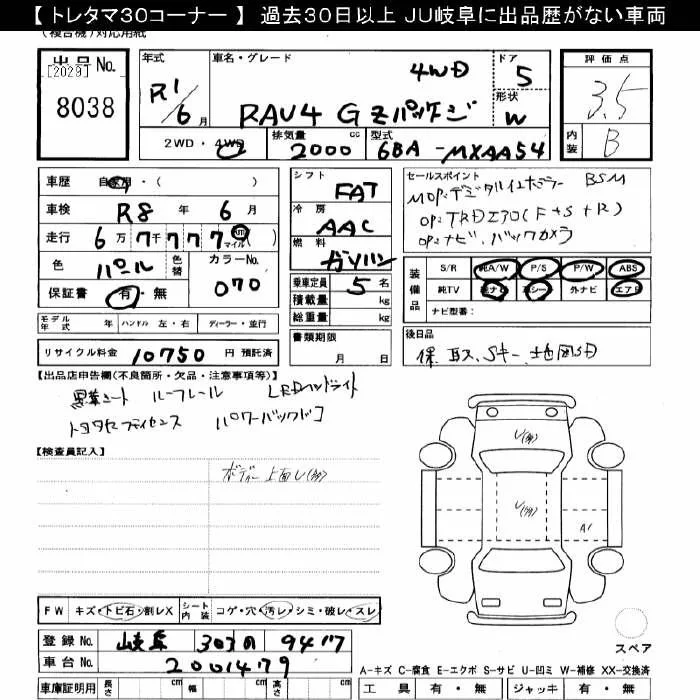 【トレタマ30コーナー】過去30日以上JU岐阜に出品歴がない車両
(複合機)対応用紙
出品No.
[2029]
8038
年式
R1/6月
車名・グレード
4WD
RAV4 G Zパッケージ
ドア
5
形状
W
2WD・4WD
排気量 2000 cc
型式 6BA-MXAA54
評価点
3.5
内装 B
車歴 自家用・( )
車検 R8年6月
走行 6万7千777 マイル
色 パール 色替 カラーNo. 070
保証書 有・無
シフト FAT
冷房 AAC
燃料 ガソリン
乗車定員 5名
積載量 kg
総重量 kg
セールスポイント
MOP:デジタルインナーミラー BSM
OP:TRDエアロ(F+S+R)
OP:ナビ、バックカメラ
装備品
S/R 純A/W P/S P/W ABS
純TV 純ナビ 革シート 外ナビ エアB
ナビ型番:
モデル年式 年 ハンドル 左・右 ディーラー・並行
リサイクル料金 10750円 預託済
書類期限
月 日
後日品
保、取、Sキー、地図SD
【出品店申告欄(不良箇所・欠品・注意事項等)】
黒革シート ルーフレール LEDヘッドライト
トヨタセーフティセンス パワーバックドア
【検査員記入】
ボディー上面U(多)
U(多)
U(多)
A1
FW キズ・トビ石・割レX シート内装 コゲ・穴・汚レ・シミ・破レ・スレ
登録No. 岐阜 303 の 9477
車台No. 2001479
スペア
A-キズ C-腐食 E-エクボ S-サビ U-凹ミ W-補修 XX-交換済
車庫証明用 長さ cm 幅 cm 高さ cm
工具 有・無 ジャッキ 有・無